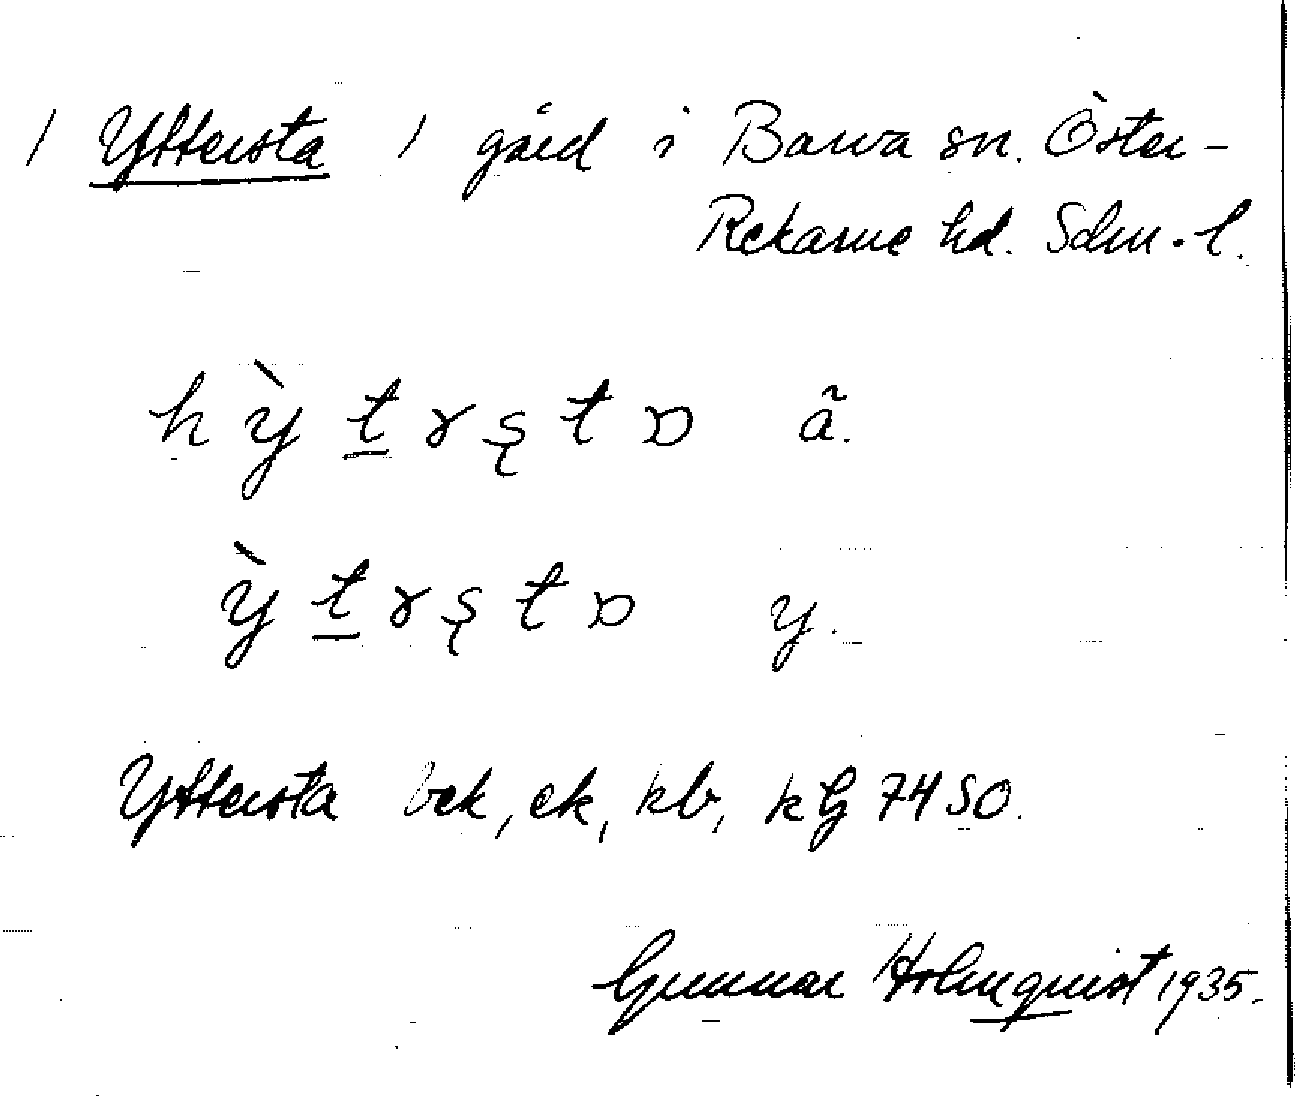 / Yttersta / gård i Barva sn. Öster-
Rekarne hd. Sdm. l.
h ỳ t̲ r ʂ t ɒ ã.
ỳ t̲ r ʂ t ɒ y.
Yttersta bek, ek, kb, kb 74 SO.
Gunnar Holmquist 1935.